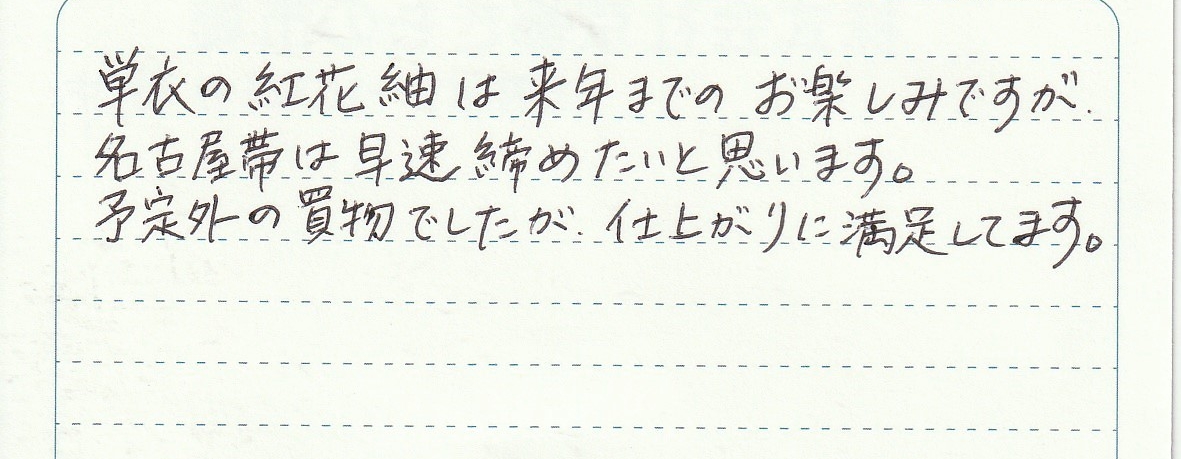 単衣の紅花紬は来年までのお楽しみですが、
名古屋帯は早速締めたいと思います。
予定外の買物でしたが、仕上がりに満足してます。